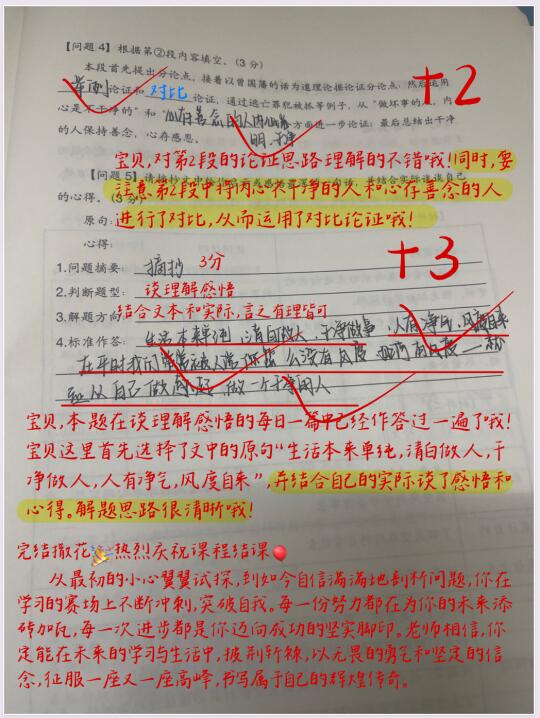 【问题4】根据第②段内容填空。(3分)
本段首先提出分论点，接着以曾国藩的话为道理论据论证分论点，然后运用
举例论证和对比论证，通过逃亡罪犯被抓等例子，从“做坏事的人，内
心是不干净的”和“心存善念的人内心光明、干净”方面进一步论证；最后总结出干净
的人保持善念，心存感恩。
+2
宝贝,对第2段的论证思路理解的不错哦!同时,要
注意第2段中将内心不干净的人和心存善念的人
进行了对比,从而运用了对比论证哦!
【问题5】请摘抄文中
的心得。(3分)
原句:
心得:
+3
1.问题摘要 摘抄 3分
2.判断题型: 谈理解感悟
3.解题方向: 结合文本和实际,言之有理皆可
4.标准作答: 生活本来单纯,清白做人,干净做事,人有净气,风度自来
在平时我们常常被人说
从自己做起,做一个干净的人
宝贝,本题在谈理解感悟的每日一篇中已经作答过一遍了哦!
宝贝这里首先选择了文中的原句“生活本来单纯,清白做人,干
净做人,人有净气,风度自来”,并结合自己的实际谈了感悟和
心得。解题思路很清晰哦!
完结撒花🎉热烈庆祝课程结课🎈
从最初的小心翼翼试探,到如今自信满满地剖析问题,你在
学习的赛场上不断冲刺,突破自我。每一份努力都在为你的未来添
砖加瓦,每一次进步都是你迈向成功的坚实脚印。老师相信,你
定能在未来的学习与生活中,披荆斩棘,以无畏的勇气和坚定的信
念,征服一座又一座高峰,书写属于自己的辉煌传奇。